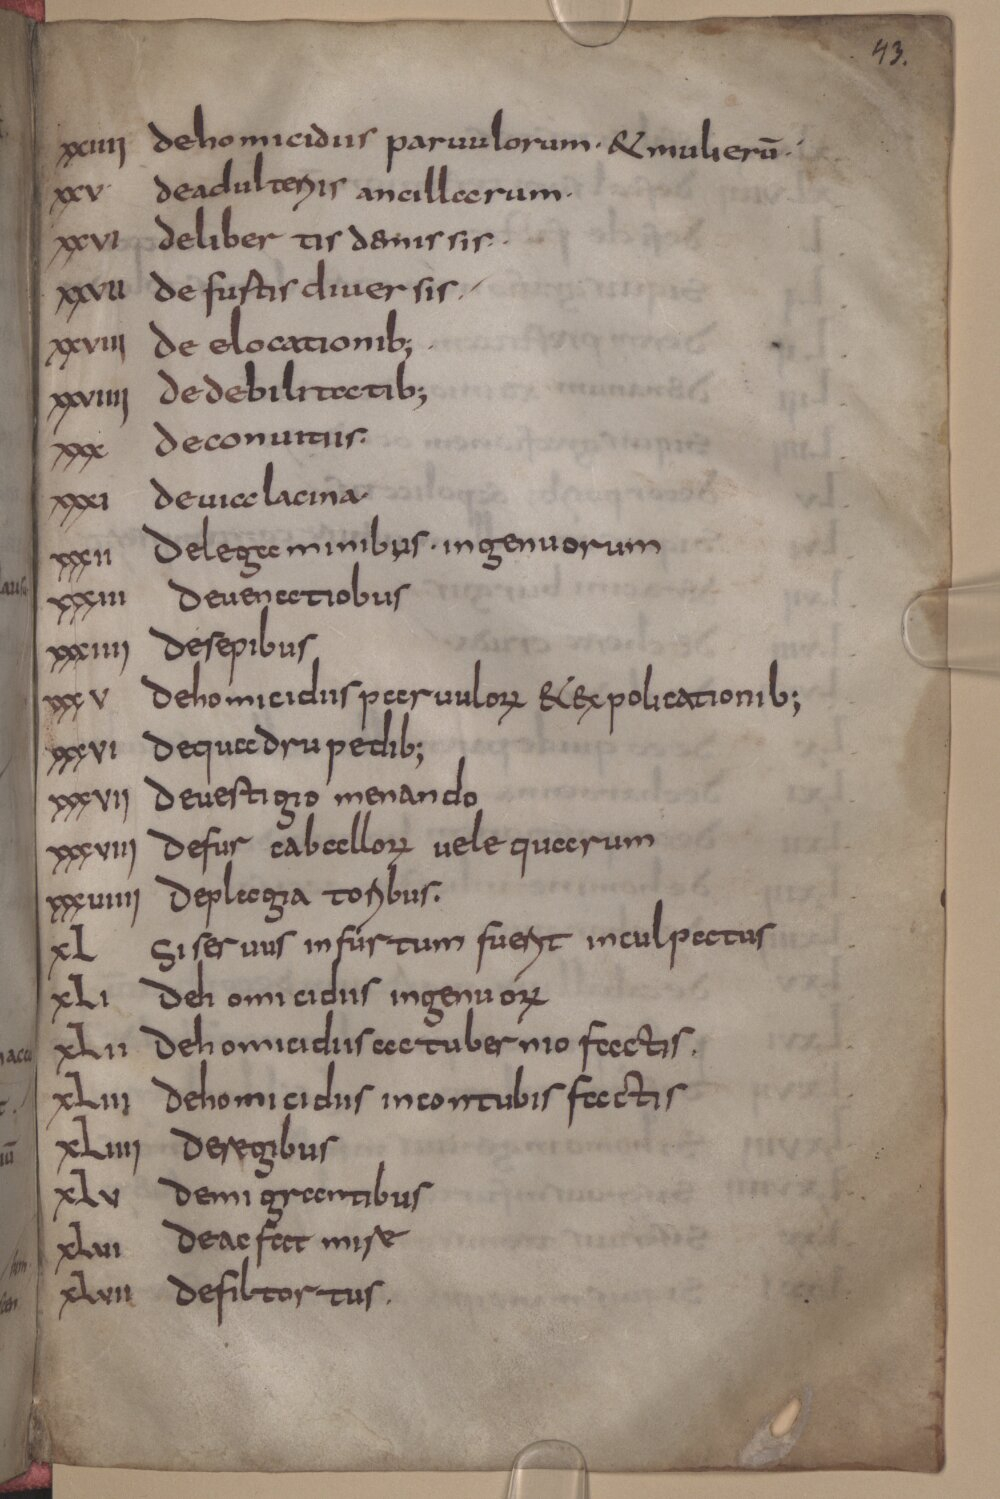 43.
xxiiii dehomicidiis paruulorum· &mulierū·
xxv· deadulteriis ancillarum·
xxvi deliber tis demissis·
xxvii de fustis diuersis·
xxviii de elocationib;·
xxviiii dedebilitatib;
xxx deconuitiis·
xxxi deuialacina·
xxxii delegaminibus· ingenuorum
xxxiii deuenatiobus
xxxiiii desepibus
xxxv dehomicidiis paruuloꝝ &expolicationib;
xxxvi dequadrupedib;
xxxvii deuestigio menando
xxxviii defur caballoꝝ uelequarum
xxxuiiii deplagia toribus·
xL Siseruus infurtum fuerit inculpatus
xLi deh omicidiis ingenuoꝝ
xLii dehomicidiis acctubernio factis·
xLiii dehomicidiis incontubis factis
xLiiii deregibus
xLv demigrantibus
xLui deacfatmire
xLvii defiltortus·